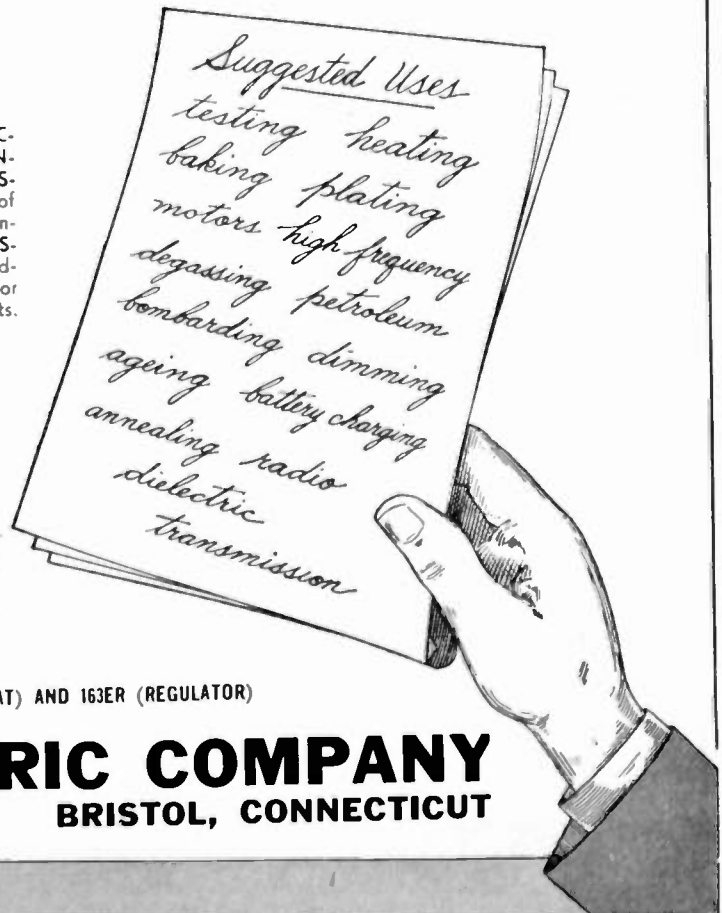 C-
N-
S-
of
n-
S-
d-
or
ts.
Suggested Uses
testing heating
baking plating
motors high frequency
degassing petroleum
bombarding dimming
ageing battery charging
annealing radio
dielectric
transmission
AT) AND 163ER (REGULATOR)
RIC COMPANY
BRISTOL, CONNECTICUT